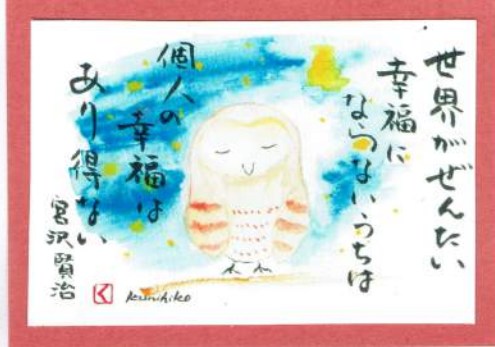 世界がぜんたい
幸福に
ならないうちは
個人の
幸福は
あり得ない
宮沢賢治
く
Kunihiko